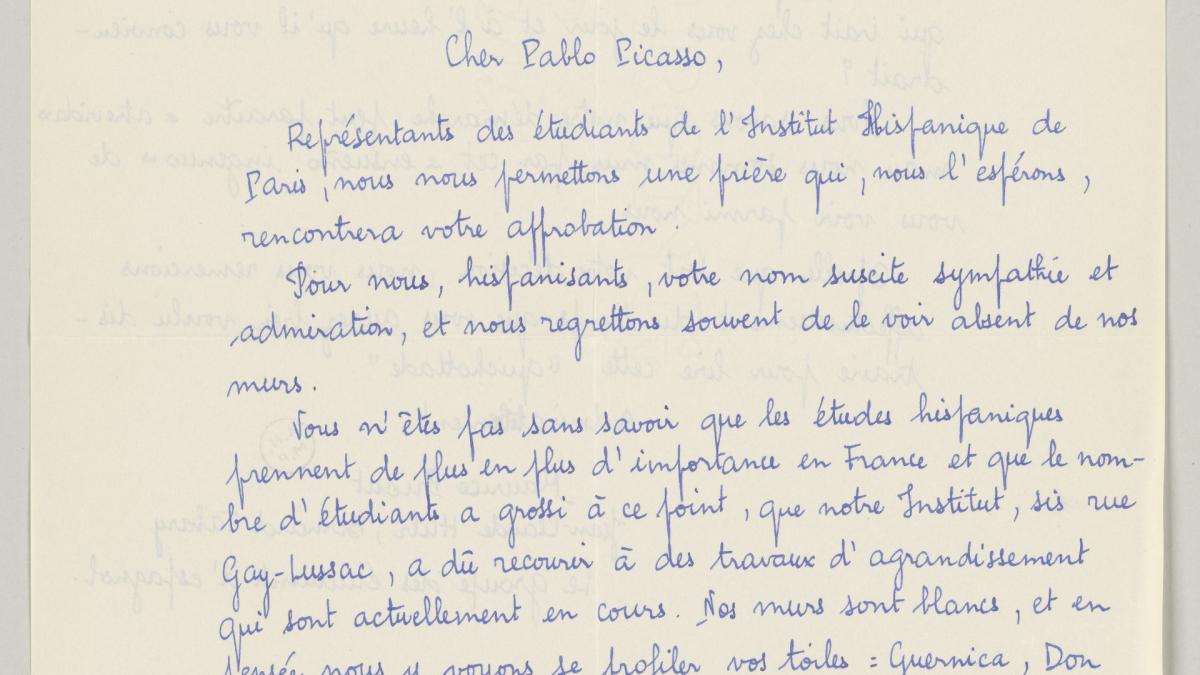 Cher Pablo Picasso,
Représentants des étudiants de l'Institut Hispanique de
Paris, nous nous permettons une prière qui, nous l'espérons,
rencontrera votre approbation.
Pour nous, hispanisants, votre nom suscite sympathie et
admiration, et nous regrettons souvent de le voir absent de nos
murs.
Vous n'êtes pas sans savoir que les études hispaniques
prennent de plus en plus d'importance en France et que le nom-
bre d'étudiants a grossi à ce point, que notre Institut, sis rue
Gay-Lussac, a dû recourir à des travaux d'agrandissement
qui sont actuellement en cours. Nos murs sont blancs, et en
pensée nous y voyons se profiler vos toiles : Guernica, Don